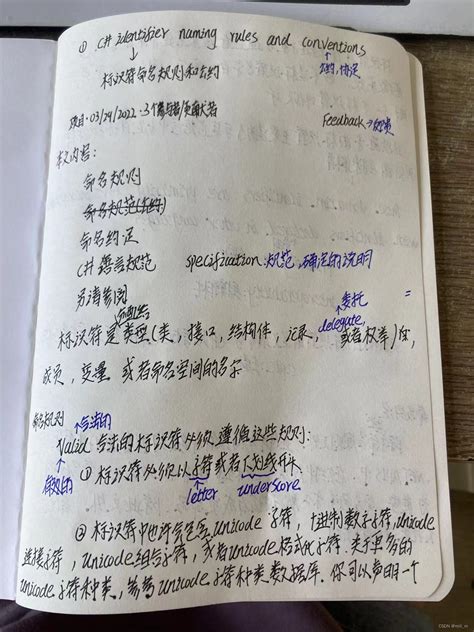 ① C# identifier naming rules and conventions
标识符命名规则和合约 合约,协定
项目·03/24/2022·3个参与者/贡献者 Feedback→反馈
本文内容:
命名规则
命名规范(合约)
命名约定
C#语言规范 specification:规范,确定的说明
另请参阅
标识符是分配给类型(类,接口,结构体,记录,delegate 委托,或者枚举)的,
成员,变量,或者命名空间的名字
命名规则 合法的
Valid 合法的标识符必须遵循这些规则:
有效的
①标识符必须以字符或者下划线开头.
letter underscore
②标识符中也许会包含Unicode字符,十进制数字字符,unicode
连接字符,Unicode组合字符,或者Unicode格式化字符.关于更多的
Unicode字符种类,参考Unicode字符种类数据库.你可以声明一个
CSDN